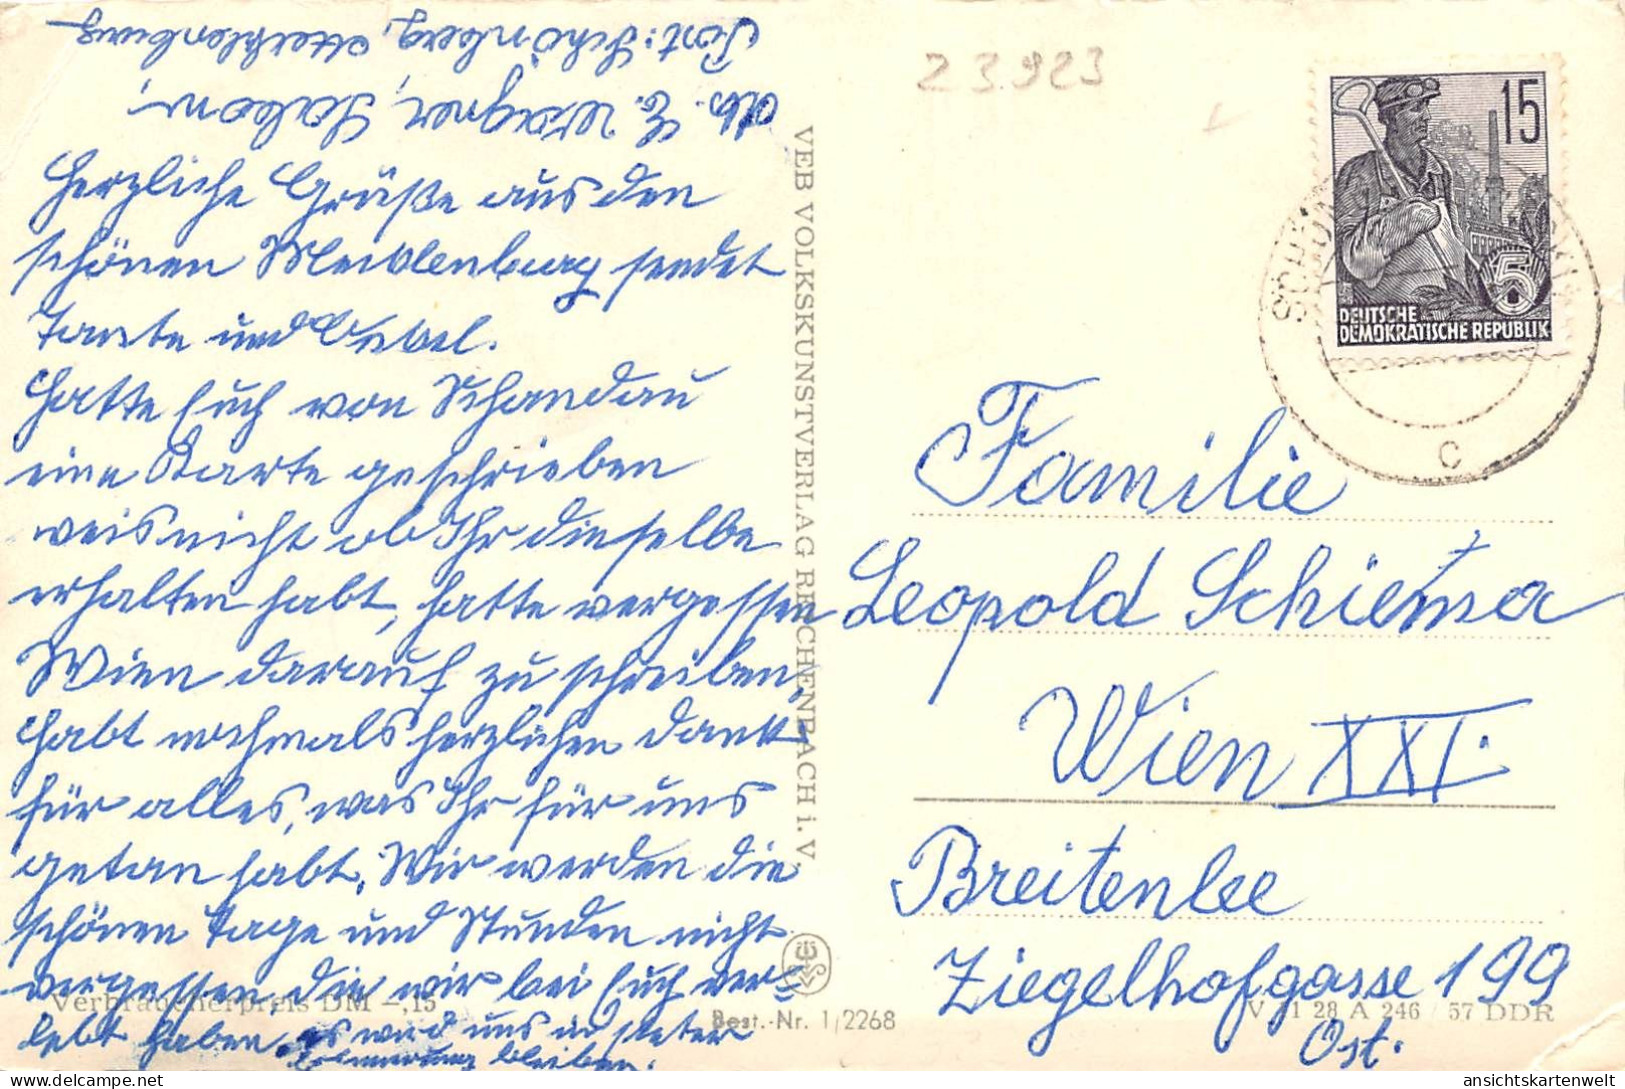 Abs. E. Wagner, Sabow,
Post: Schönberg, Mecklenburg
Herzliche Grüße aus dem
schönen Mecklenburg sendet
Tante und Onkel.
Hatte Euch von Schandau
eine Karte geschrieben
weis nicht ob Ihr dieselbe
erhalten habt, hatte vergessen
Wien darauf zu schreiben,
habt nochmals herzlichen Dank
für alles, was Ihr für uns
getan habt. Wir werden die
schönen Tage und Stunden nicht
vergessen, die wir bei Euch ver-
lebt haben, es wird uns in steter
Erinnerung bleiben.
Verbraucherpreis DM -,15
VEB VOLKSKUNSTVERLAG REICHENBACH i. V.
Best.-Nr. 1/2268
23.923
15
5
DEUTSCHE
DEMOKRATISCHE REPUBLIK
c
Familie
Leopold Schiema
Wien XXI.
Breitenlee
Ziegelhofgasse 199
V 11 28 A 246 / 57 DDR
Ost.
ansichtskartenwelt